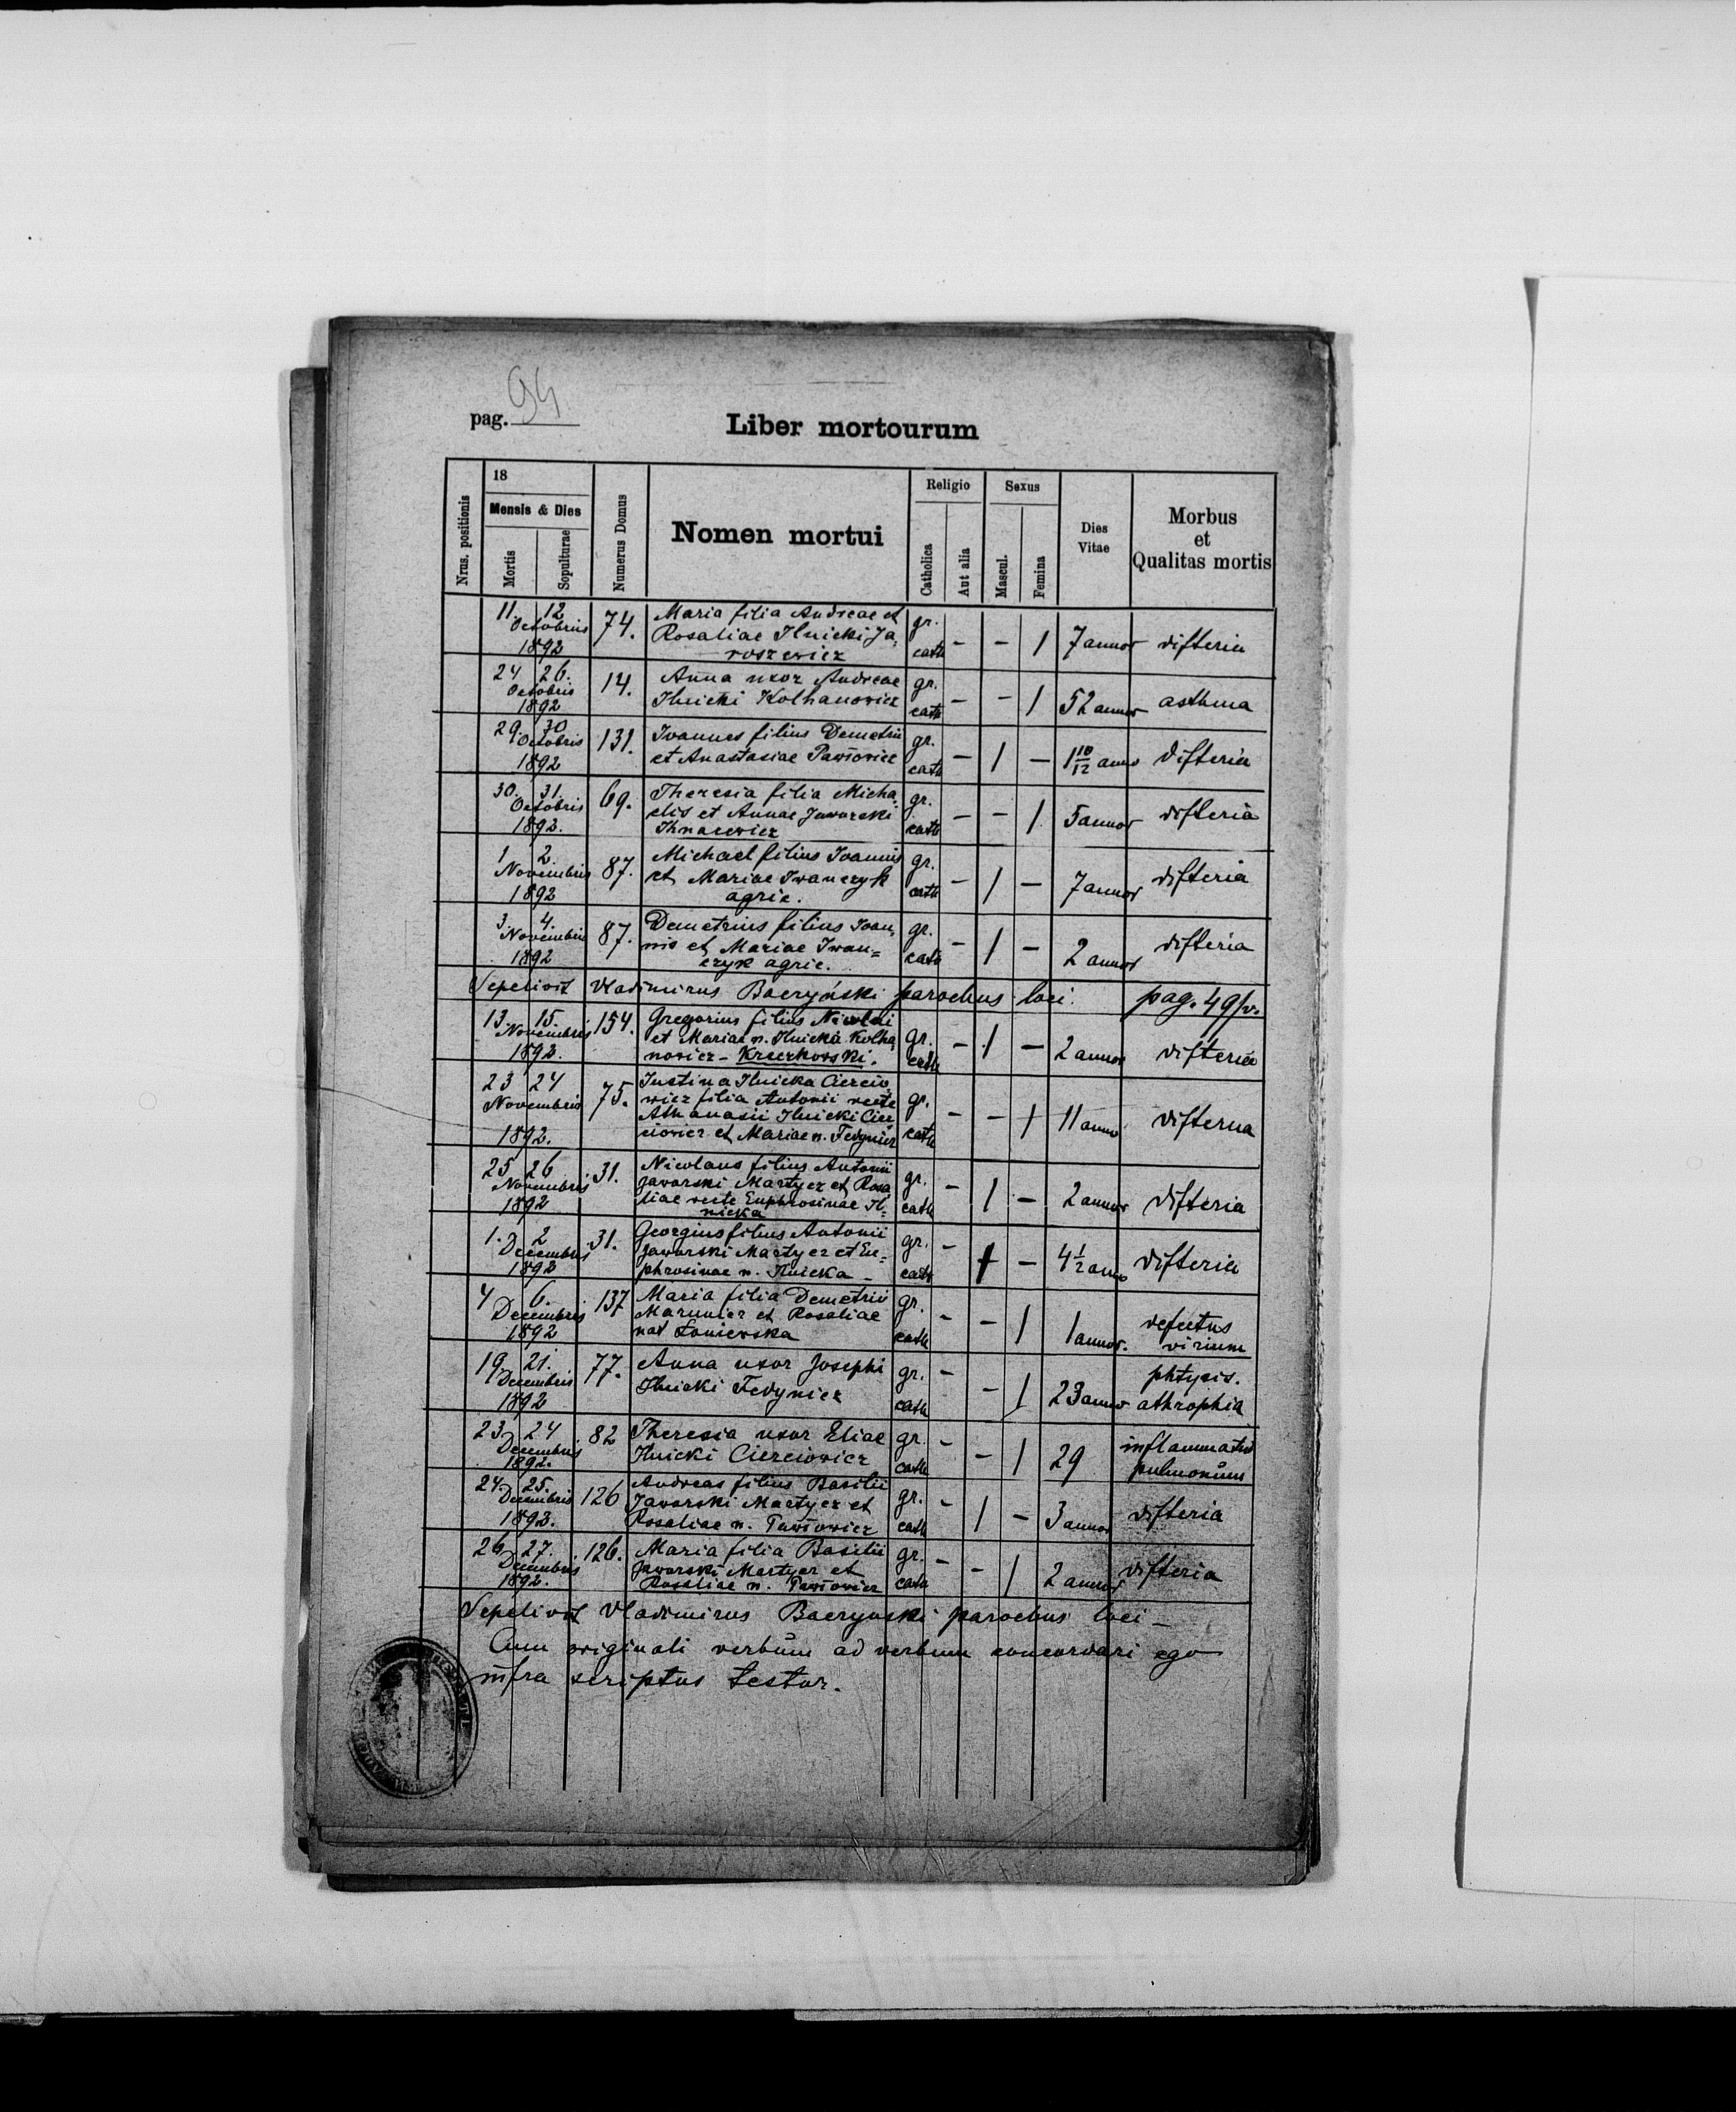 pag. 94
Liber mortourum
Nrus. positionis
18
Mensis & Dies
Mortis
Sopulturae
Numerus Domus
Nomen mortui
Religio
Catholica
Aut alia
Sexus
Mascul.
Femina
Dies
Vitae
Morbus
et
Qualitas mortis
11. 12 Octobris 1892 74. Maria filia Andreae et
Rosaliae Ilnicki Ja=
roszewicz gr. cath - - 1 7 annor difteria
24 26. Octobris 1892 14. Anna uxor Andreae
Ilnicki Kolhanowicz gr. cath - - 1 52 annor asthma
29 30 Octobris 1892 131. Ivannes filius Demetrii
et Anastasiae Pawłowicz gr. cath - 1 - 1 10/12 anno difteria
30. 31. Octobris 1892. 69. Theresia filia Micha=
elis et Annae Jaworski
Ihnacewicz gr. cath - - 1 5 annor difteria
1 2. Novembris 1892 87. Michael filius Ivannis
et Mariae Iwanczyk
agric. gr. cath - 1 - 7 annor difteria
3. 4. Novembris 1892 87. Demetrius filius Ioan=
nis et Mariae Iwan=
czyk agric. gr. cath - 1 - 2 annor difteria
Sepelivit Vladimirus Baczyński parochus loci. pag. 49/v.
13. 15. Novembris 1892. 154. Gregorius filius Nicolai
et Mariae n. Ilnicka Kolha=
nowicz - Kreczkowski. gr. cath - 1 - 2 annor difteria
23 24 Novembris 1892. 75. Justina Ilnicka Cierció=
wicz filia Antonii recte
Athanasii Ilnicki Cier=
ciowicz et Mariae n. Fedynicz gr. cath - - 1 11 anno difteria
25 26 Novembris 1892 31. Nicolaus filius Antonii
Jaworski Martycz et Rosa=
liae recte Euphrosinae Il=
nicka gr. cath - 1 - 2 annor difteria
1. 2 Decembris 1892 31. Georgius filius Antonii
Jaworski Martycz et Eu=
phrosinae n. Ilnicka - gr. cath - 1 - 4 1/2 anno difteria
4 6. Decembris 1892 137 Maria filia Demetrii
Marunicz et Rosaliae
nat Łoniewska gr. cath - - 1 1 annor. defectus
virium
19 21. Decembris 1892 77. Anna uxor Josephi
Ilnicki Fedynicz gr. cath - - 1 23 anno phtysis.
athrophia
23 24 Decembris 1892. 82 Theresia uxor Eliae
Ilnicki Cierciowicz gr. cath - - 1 29 inflammatio
pulmonum
24. 25. Decembris 1892. 126 Andreas filius Basilii
Jaworski Martycz et
Rosaliae n. Pawłowicz gr. cath - 1 - 3 annor difteria
26 27. Decembris 1892. 126. Maria filia Basilii
Jaworski Martycz et
Rosaliae n. Pawłowicz gr. cath - - 1 2 annor difteria
Sepelivit Vladimirus Baczynski parochus loci -
Cum originali verbum ad verbum concordari ego
infra scriptus testor.